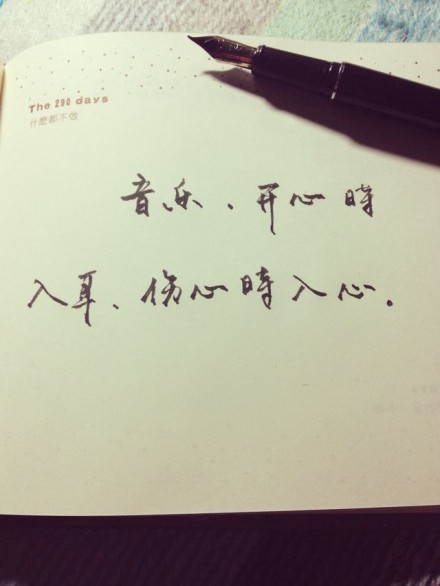 The 290 days
什麼都不做
音乐、开心時
入耳、伤心時入心。